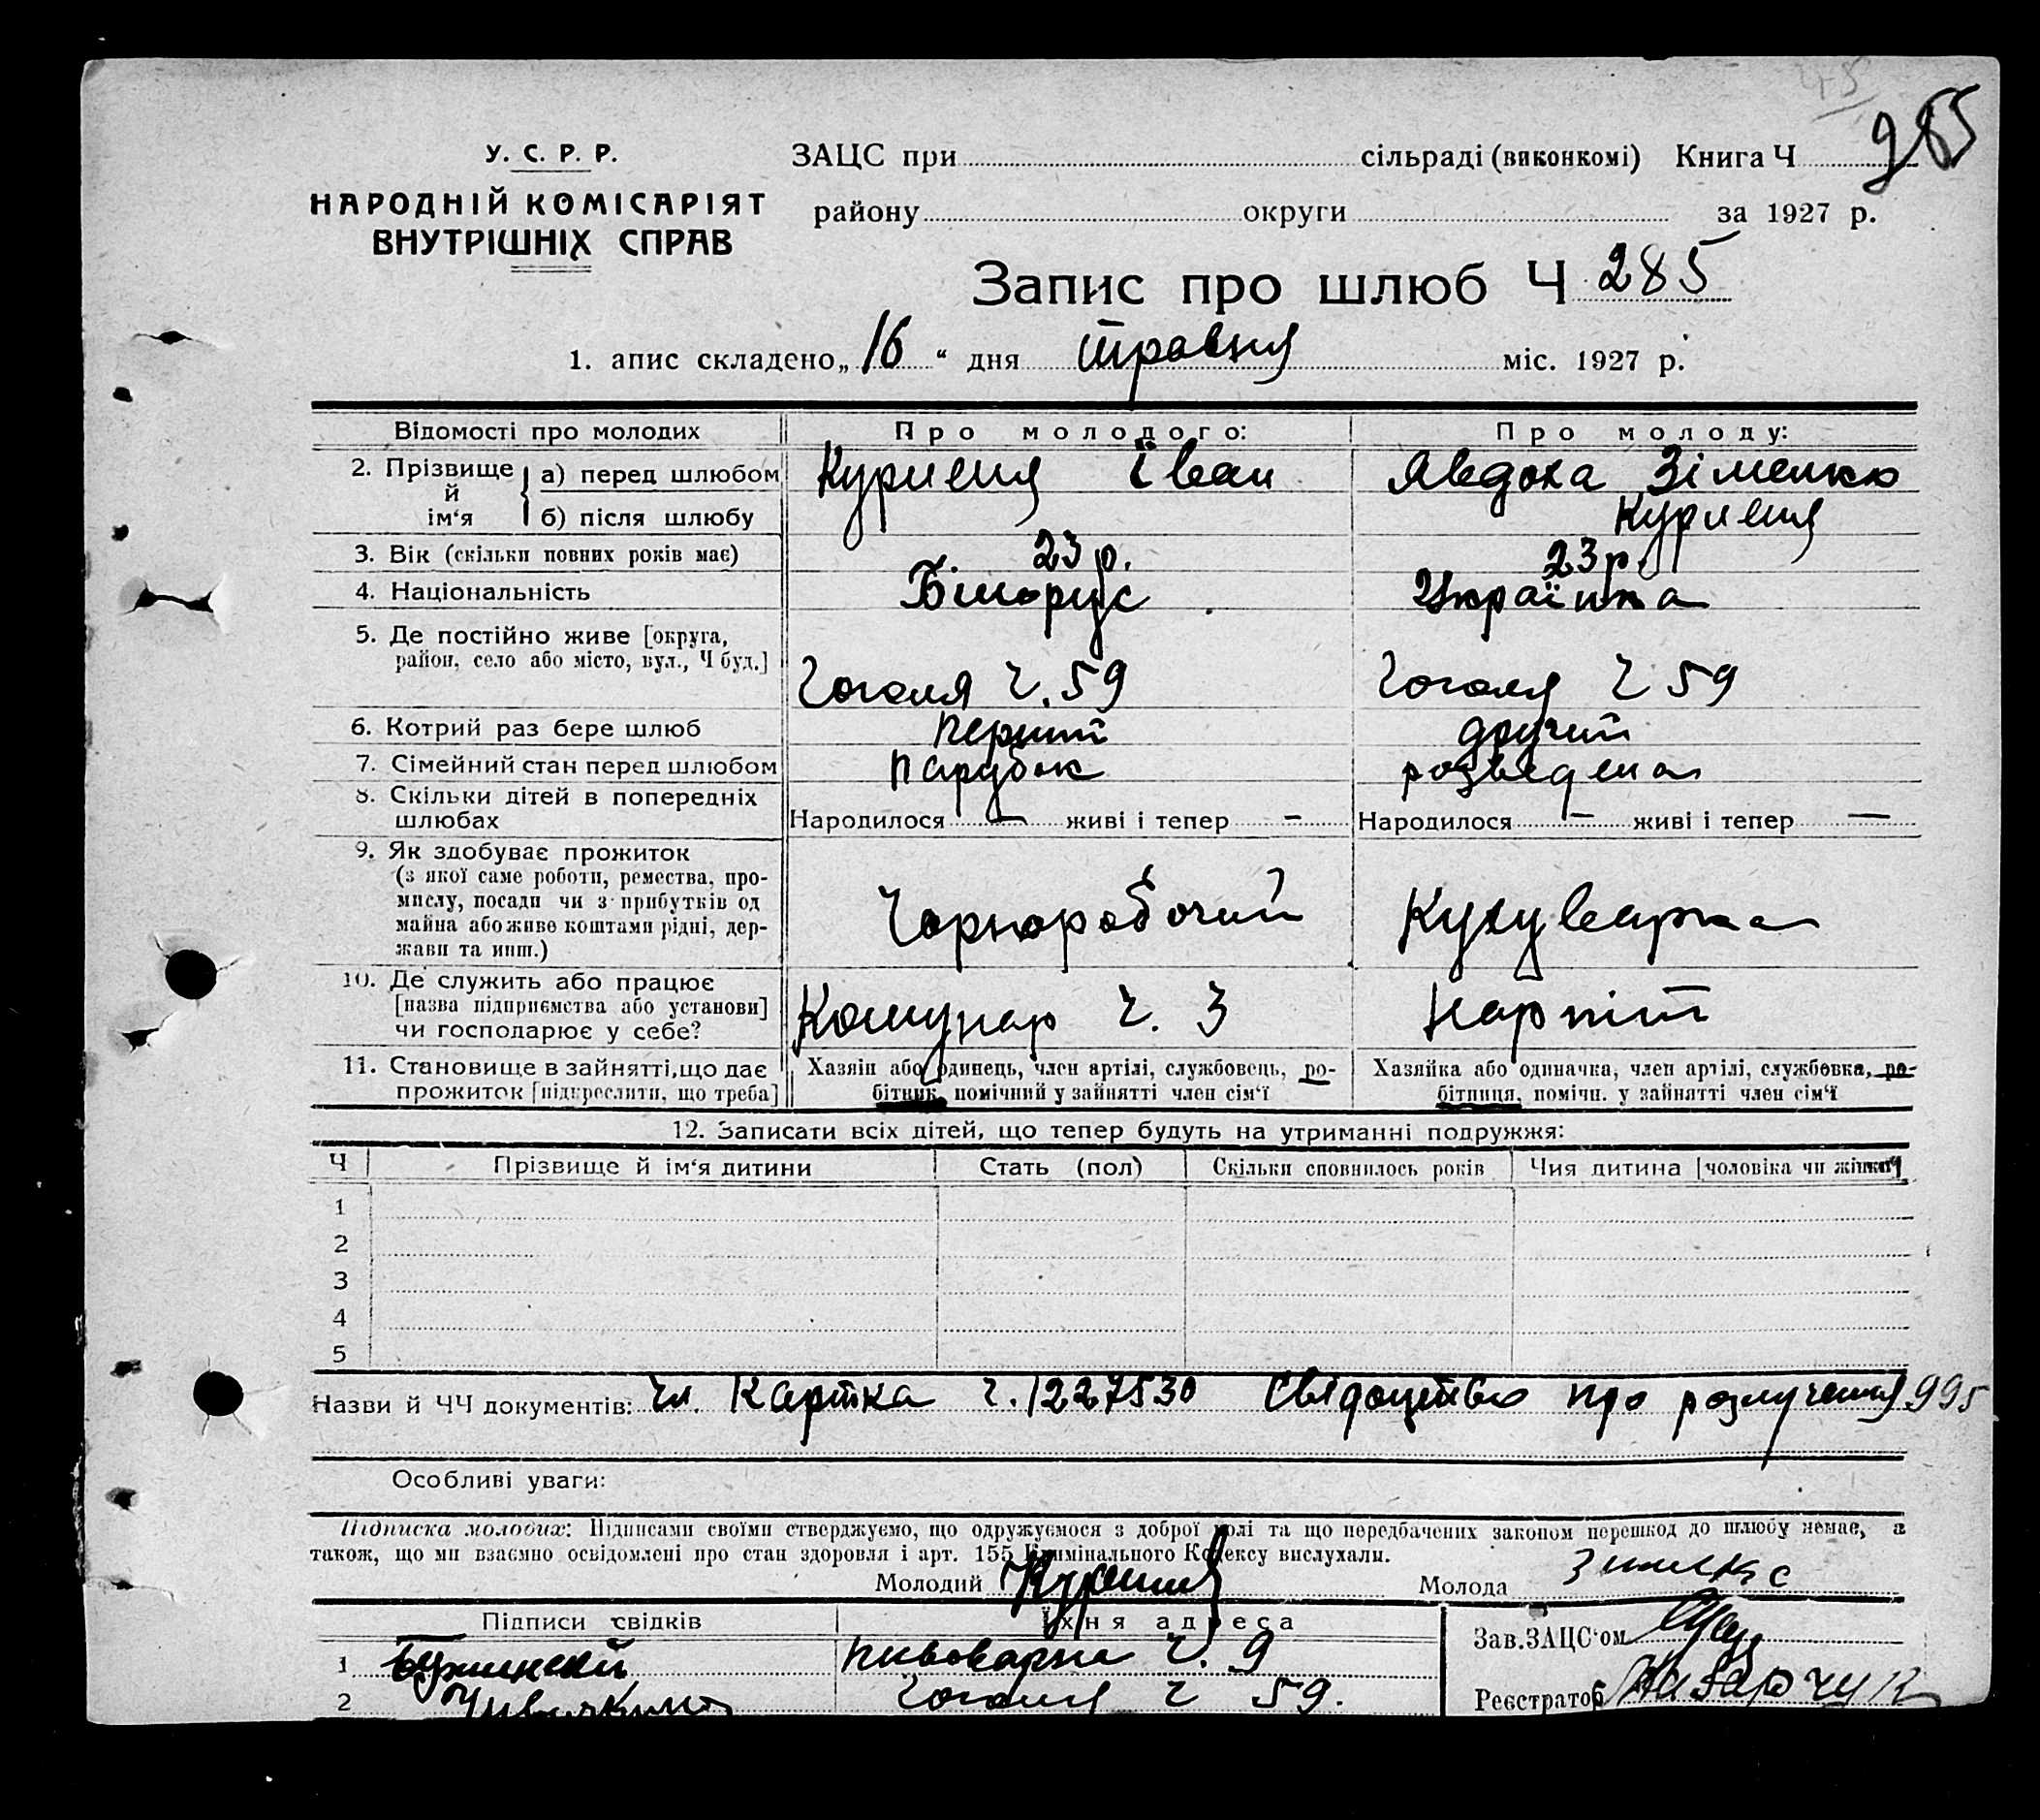 45
285
У. С. Р. Р.
НАРОДНІЙ КОМІСАРІЯТ
ВНУТРІШНІХ СПРАВ
ЗАЦС при сільраді (виконкомі) Книга Ч
району округи за 1927 р.
Запис про шлюб Ч 285
1. апис складено „16“ дня травня міс. 1927 р.
Відомості про молодих Про молодого: Про молоду:
2. Прізвище й ім‘я а) перед шлюбом Куриленя Іван Явдоха Зіменко
б) після шлюбу Куриленя
3. Вік (скільки повних років має) 23 р. 23 р.
4. Національність Білорус Українка
5. Де постійно живе [округа,
район, село або місто, вул., Ч буд.] Гоголя Ч. 59 Гоголя Ч 59
6. Котрий раз бере шлюб перший другий
7. Сімейний стан перед шлюбом парубок розведена
8. Скільки дітей в попередніх
шлюбах Народилося — живі і тепер — Народилося — живі і тепер —
9. Як здобуває прожиток
(з якої саме роботи, ремества, про-
мислу, посади чи з прибутків од
майна або живе коштами рідні, дер-
жави та инш.) Чорноробочий Кухуварка
10. Де служить або працює
[назва підприємства або установи]
чи господарює у себе? Комунар Ч. 3 Нарпіт
11. Становище в зайнятті, що дає Хазяін або одинець, член артілі, службовець, ро- Хазяйка або одиначка, член артілі, службовка, ро-
прожиток [підкреслити, що треба] бітник, помічний у зайнятті член сім‘ї бітниця, помічн. у зайнятті член сім‘ї
12. Записати всіх дітей, що тепер будуть на утриманні подружжя:
Ч Прізвище й ім‘я дитини Стать (пол) Скільки сповнилось років Чия дитина [чоловіка чи жінки]
1
2
3
4
5
Назви й ЧЧ документів: Чл. Картка Ч. 1227530 Свідоцтво про розлучення 995
Особливі уваги:
Підписка молодих: Підписами своїми стверджуємо, що одружуємося з доброї волі та що передбачених законом перешкод до шлюбу немає, а
також, що ми взаємно освідомлені про стан здоровля і арт. 155 Кримінального Кодексу вислухали.
Молодий Молода
Підписи свідків Їхня адреса Зав. ЗАЦС‘ом
1 Пивоварна Ч. 9
2 Гоголя Ч 59. Реєстратор Назарчук